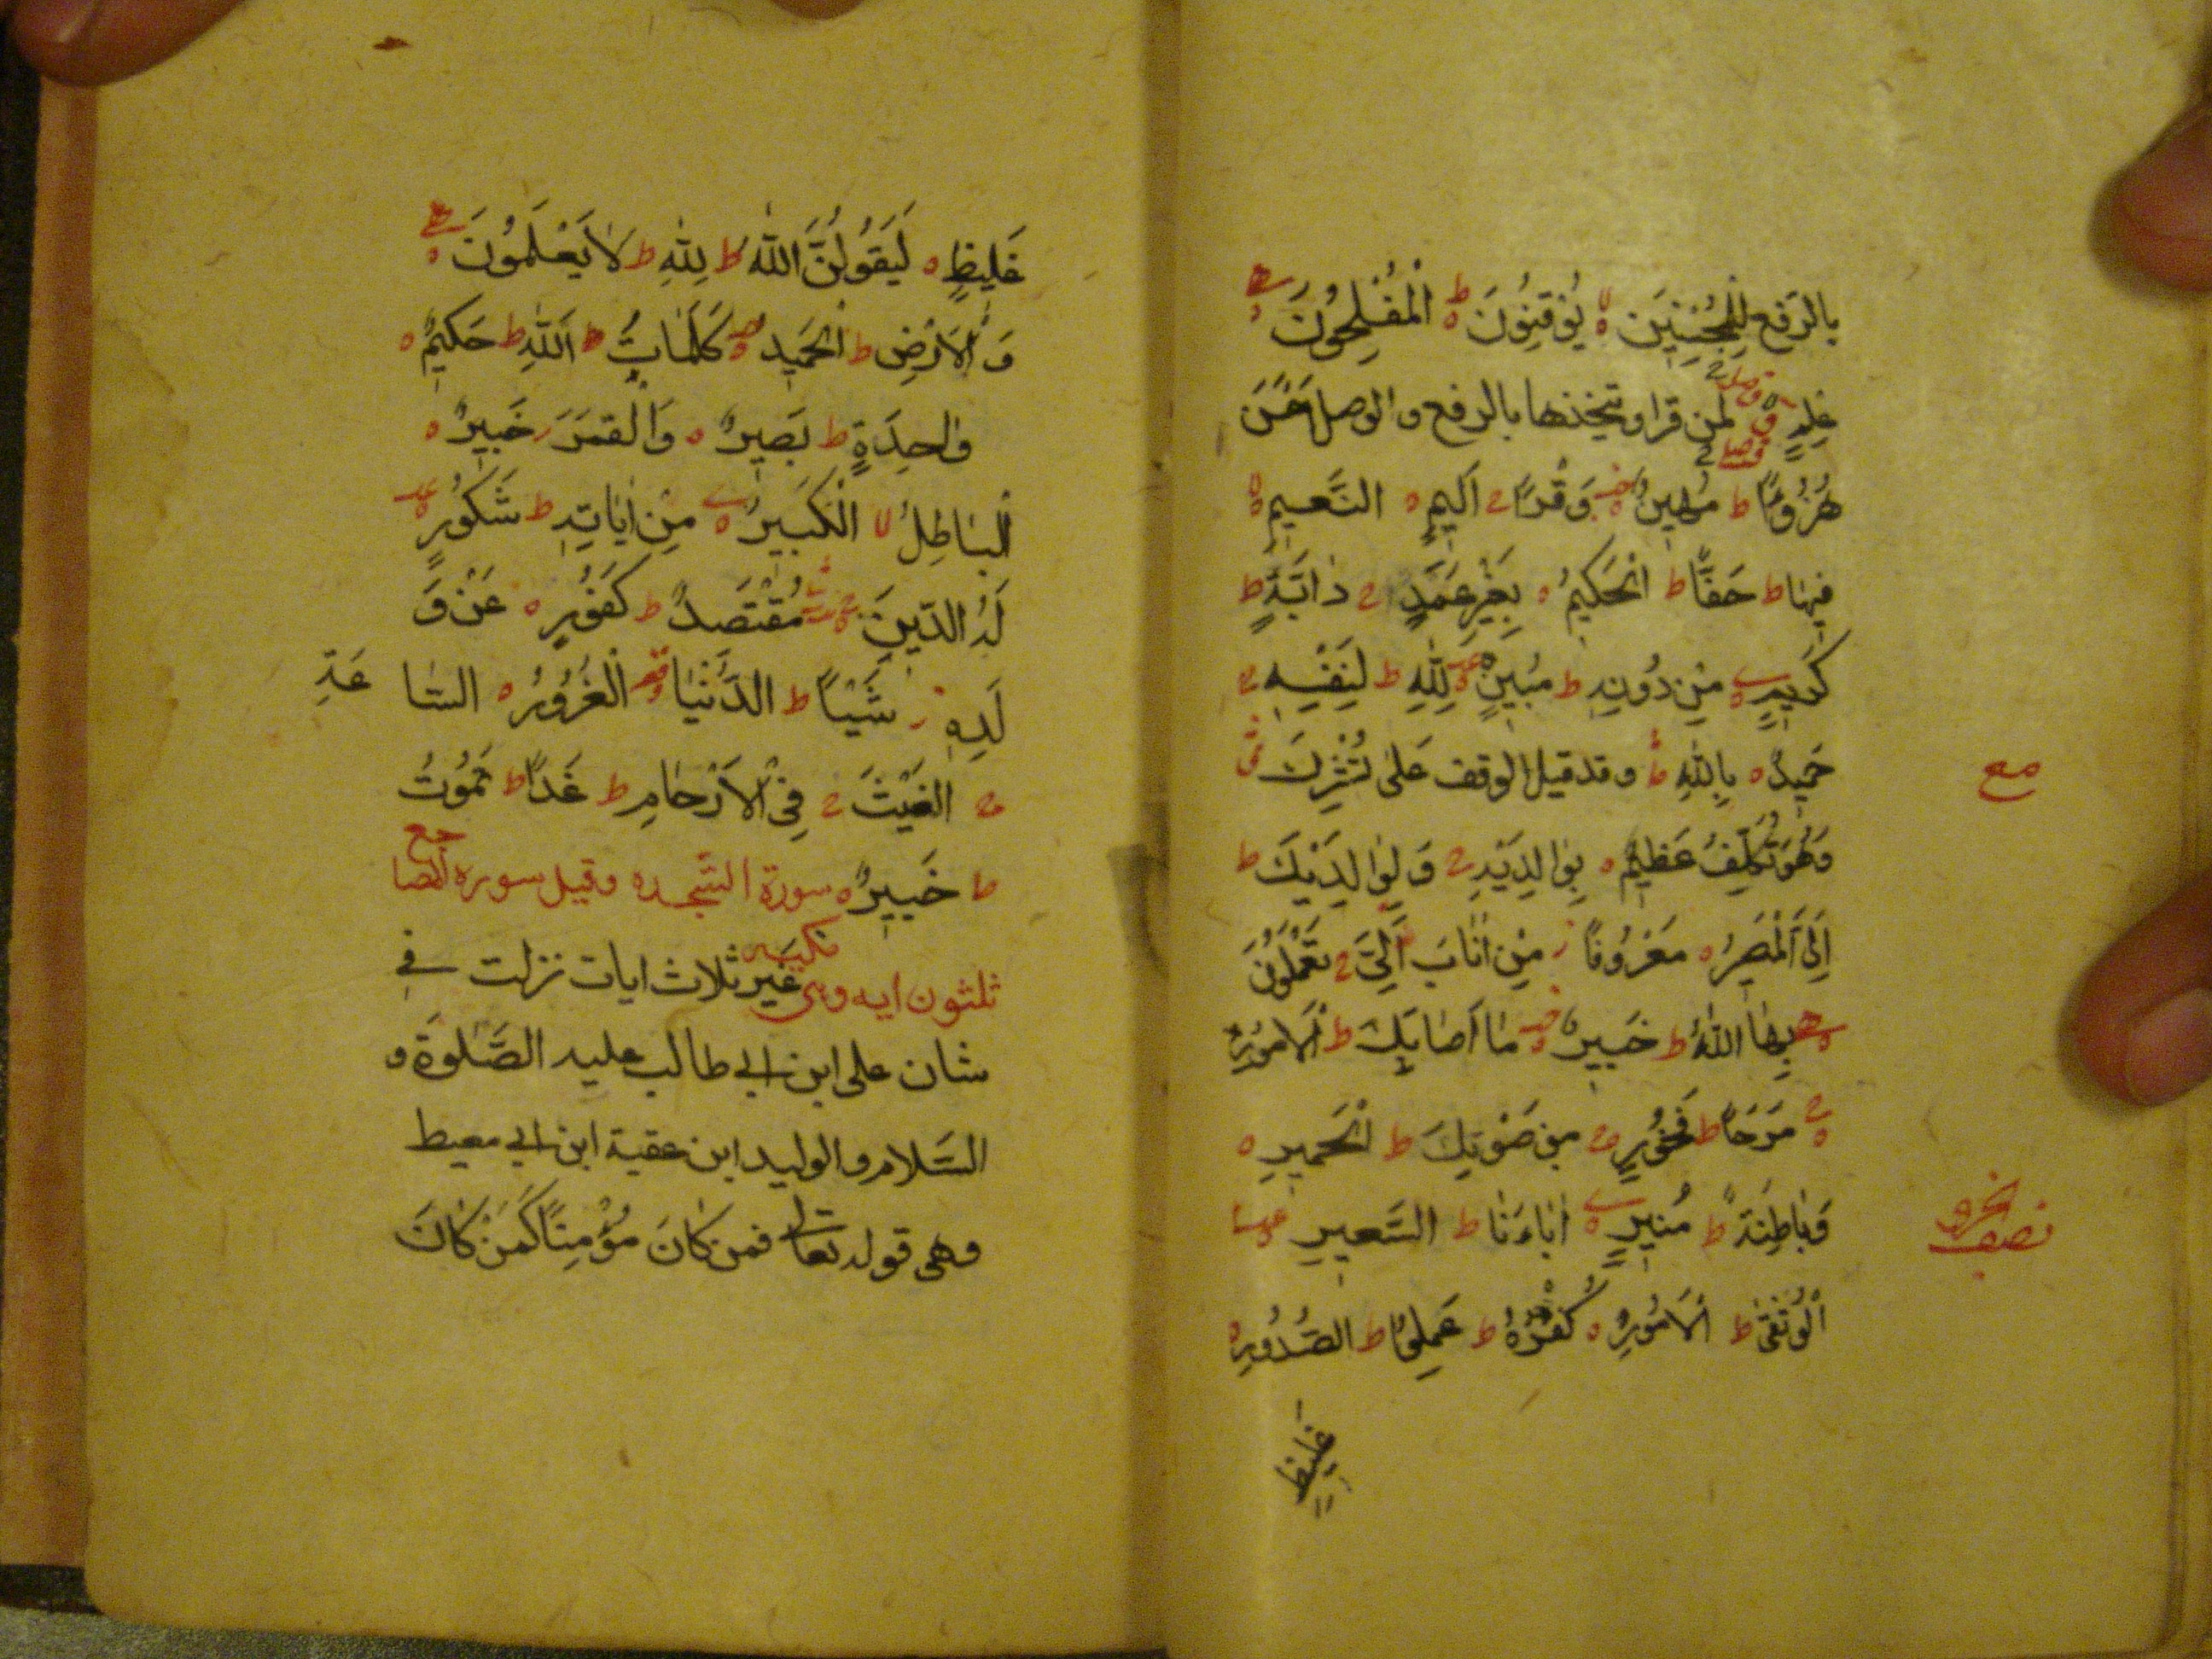 بالرفع لِلْمُحْسِنِينَ لا يُوقِنُونَ ط الْمُفْلِحُونَ
عِلْمٍ ق لمن قرا ويتخذها بالرفع والوصل احْسَن
هُزُوًا ط مُهِينٌ وَقْرًا ج اَلِيمٍ ه النَّعِيمِ لا
فِيهَا ط حَقًّا ط الْحَكِيمُ ه بِغَيْرِ عَمَدٍ ج دَابَّةٍ ط
كَرِيمٍ مِنْ دُونِهِ ط مُبِينٍ لِلّٰهِ ط لِنَفْسِهِ ج
حَمِيدٌ ه بِاللّٰهِ ط وقد قيل الوقف عَلٰى تُشْرِكْ ق
مع
وَهُوَ تَكَلُّفٌ عَظِيمٌ ه بِوَالِدَيْهِ ج وَلِوَالِدَيْكَ ط
اِلَيَّ الْمَصِيرُ ه مَعْرُوفًا ز مَنْ اَنَابَ اِلَيَّ ج تَعْمَلُونَ
بِهَا اللّٰهُ ط خَبِيرٌ مَا اَصَابَكَ ط الْاُمُورِ ه
ج مَرَحًا ط فَخُورٍ ج مِنْ صَوْتِكَ ط الْحَمِيرِ ه
وَبَاطِنَةً ط مُنِيرٍ اٰبَاءَنَا ط السَّعِيرِ
نصف الحزب
الْوُثْقٰى ط الْاُمُورِ ه كُفْرُهُ ط عَمِلُوا ط الصُّدُورِ ه
غَلِيظٍ
غَلِيظٍ ه لَيَقُولُنَّ اللّٰهُ ط لِلّٰهِ ط لَا يَعْلَمُونَ ه
وَالْاَرْضِ ط الْحَمِيدُ كَلِمَاتُ اللّٰهِ ط حَكِيمٌ ه
وَاحِدَةٍ ط بَصِيرٌ ه وَالْقَمَرَ ز خَبِيرٌ ه
الْبَاطِلُ لا الْكَبِيرُ ه مِنْ اٰيَاتِهِ ط شَكُورٍ
لَهُ الدِّينَ ج مُقْتَصِدٌ ط كَفُورٍ ه عَنْ وَ
لَدِهِ ز شَيْئًا ط الدُّنْيَا وقفه الْغَرُورُ ه السَّا عَةِ
ج الْغَيْثَ ج فِي الْاَرْحَامِ ط غَدًا ط تَمُوتُ
ط خَبِيرٌ ه سورة السجده وقيل سوره المضا جع
ثلثون ايه وهى مكيه غير ثلاث ايات نزلت في
شان على ابن ابي طالب عليه الصَّلٰوة و
السَّلام والوليد ابن عقبة ابن ابي معيط
وهى قوله تعالى فمن كَانَ مُؤْمِنًا كَمَنْ كَانَ